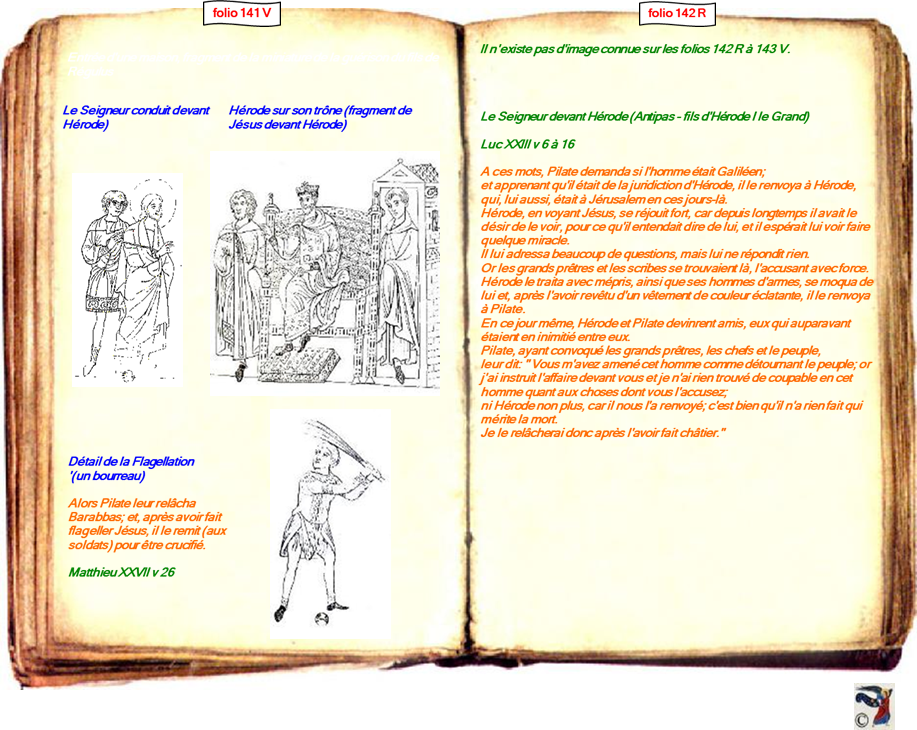 folio 141 V
Le Seigneur conduit devant
Hérode)
Hérode sur son trône (fragment de
Jésus devant Hérode)
Détail de la Flagellation
'(un bourreau)
Alors Pilate leur relâcha
Barabbas; et, après avoir fait
flageller Jésus, il le remit (aux
soldats) pour être crucifié.
Matthieu XXVII v 26
folio 142 R
Il n'existe pas d'image connue sur les folios 142 R à 143 V.
Le Seigneur devant Hérode (Antipas - fils d'Hérode I le Grand)
Luc XXIII v 6 à 16
A ces mots, Pilate demanda si l'homme était Galiléen;
et apprenant qu'il était de la juridiction d'Hérode, il le renvoya à Hérode,
qui, lui aussi, était à Jérusalem en ces jours-là.
Hérode, en voyant Jésus, se réjouit fort, car depuis longtemps il avait le
désir de le voir, pour ce qu'il entendait dire de lui, et il espérait lui voir faire
quelque miracle.
Il lui adressa beaucoup de questions, mais lui ne répondit rien.
Or les grands prêtres et les scribes se trouvaient là, l'accusant avec force.
Hérode le traita avec mépris, ainsi que ses hommes d'armes, se moqua de
lui et, après l'avoir revêtu d'un vêtement de couleur éclatante, il le renvoya
à Pilate.
En ce jour même, Hérode et Pilate devinrent amis, eux qui auparavant
étaient en inimitié entre eux.
Pilate, ayant convoqué les grands prêtres, les chefs et le peuple,
leur dit: " Vous m'avez amené cet homme comme détournant le peuple; or
j'ai instruit l'affaire devant vous et je n'ai rien trouvé de coupable en cet
homme quant aux choses dont vous l'accusez;
ni Hérode non plus, car il nous l'a renvoyé; c'est bien qu'il n'a rien fait qui
mérite la mort.
Je le relâcherai donc après l'avoir fait châtier."
©